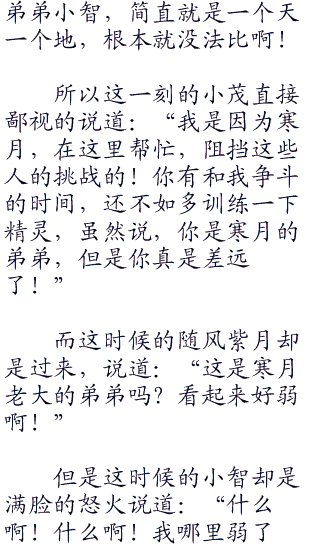 弟弟小智，简直就是一个天
一个地，根本就没法比啊！
所以这一刻的小茂直接
鄙视的说道：“我是因为寒
月，在这里帮忙，阻挡这些
人的挑战的！你有和我争斗
的时间，还不如多训练一下
精灵，虽然说，你是寒月的
弟弟，但是你真是差远
了！”
而这时候的随风紫月却
是过来，说道：“这是寒月
老大的弟弟吗？看起来好弱
啊！”
但是这时候的小智却是
满脸的怒火说道：“什么
啊！什么啊！我哪里弱了